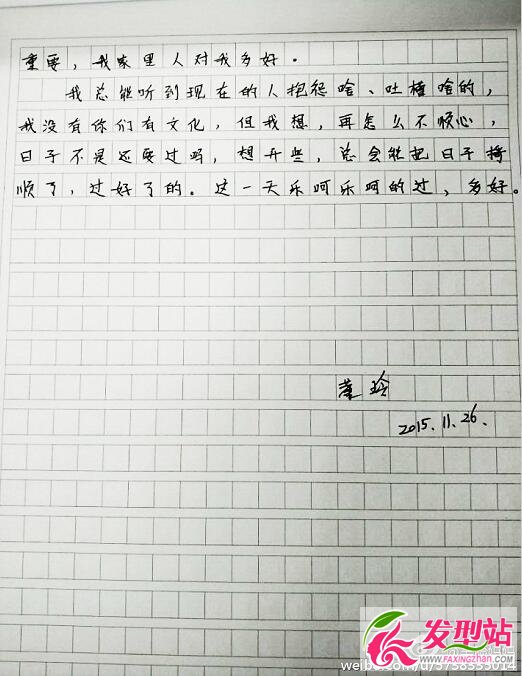 重要，我家里人对我多好.
我总能听到现在的人抱怨啥、吐槽啥的，
我没有你们有文化，但我想，再怎么不顺心，
日子不是还要过吗，想开些，总会能把日子捋
顺了，过好了的。这一天乐呵乐呵的过，多好。
董玲
2015.11.26.
发型站
WWW.FAXINGZHAN.COM